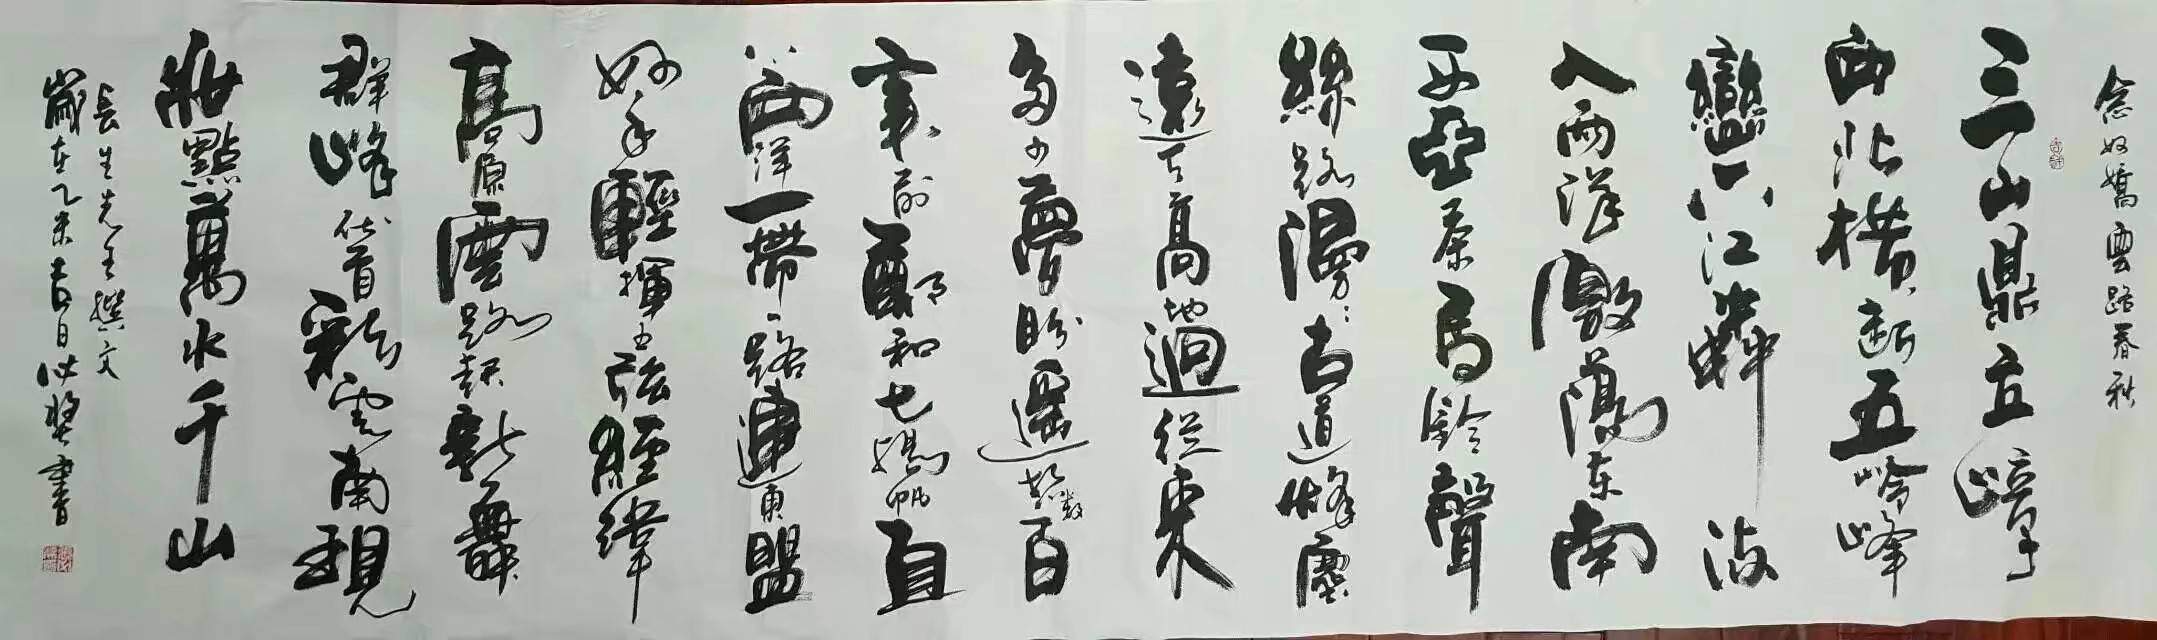 念奴嬌雲路春秋
三山鼎立
西北橫斷五嶺峰
巒六江
入兩洋激蕩东南
西亞茶馬鈴聲
絲路漫古道烽塵
遠天高地迥從東
多少夢盼遥越数百
前鄭和七帆直
西洋一帶一路連東盟
好手輕揮经緯
高原雲路起新舞
群峰俯首彩雲南現
妝點萬水千山
長生先生撰文
歲在乙未吉日書